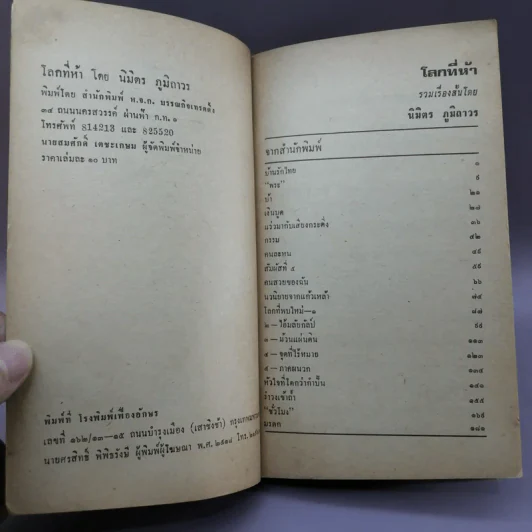 โลกที่ห้า โดย นิมิตร ภูมิถาวร
พิมพ์โดย สำนักพิมพ์ พ.ธ.ก. บรรณกิจเทรดดิ้ง
๓๔ ถนนนครสวรรค์ ผ่านฟ้า ก.ท. ๑
โทรศัพท์ 814213 และ 825520
นายสมศักดิ์ เตชะเกษม ผู้จัดพิมพ์จำหน่าย
ราคาเล่มละ ๑๐ บาท
พิมพ์ที่ โรงพิมพ์เฟื่องอักษร
เลขที่ ๑๖๒/๑๓—๑๕ ถนนบำรุงเมือง (เสาชิงช้า)
นายศรสิทธิ์ พิพิธรังษี ผู้พิมพ์ผู้โฆษณา พ.ศ. ๒๕๑๘ โทร.
โลกที่ห้า
รวมเรื่องสั้นโดย
นิมิตร ภูมิถาวร
จากสำนักพิมพ์
บ้านรักไทย ๑
"พระ" ๕
บ้า ๒๑
เซ็นบูต ๒๗
แว่วมากับเสียงกระดึง ๓๖
กรรม ๔๒
คนละหน ๔๕
สัมผัสที่ ๕ ๕๙
คนสวยของฉัน ๖๖
นวนิยายจากแก้วเหล้า ๗๕
โลกที่พบใหม่—๑ ๘๗
๒ — ไอ้มลัยกัลป์ ๙๕
๓ — ม้วนแผ่นดิน ๑๑๓
๔ — ชุดที่ไร้หมาย ๑๒๓
๕ — ภาคผนวก ๑๓๕
หัวใจที่โตกว่ากำปั้น ๑๔๑
รำวงเข้าถ้ำ ๑๕๕
"ชั่วโมง" ๑๖๕
มรดก ๑๘๑